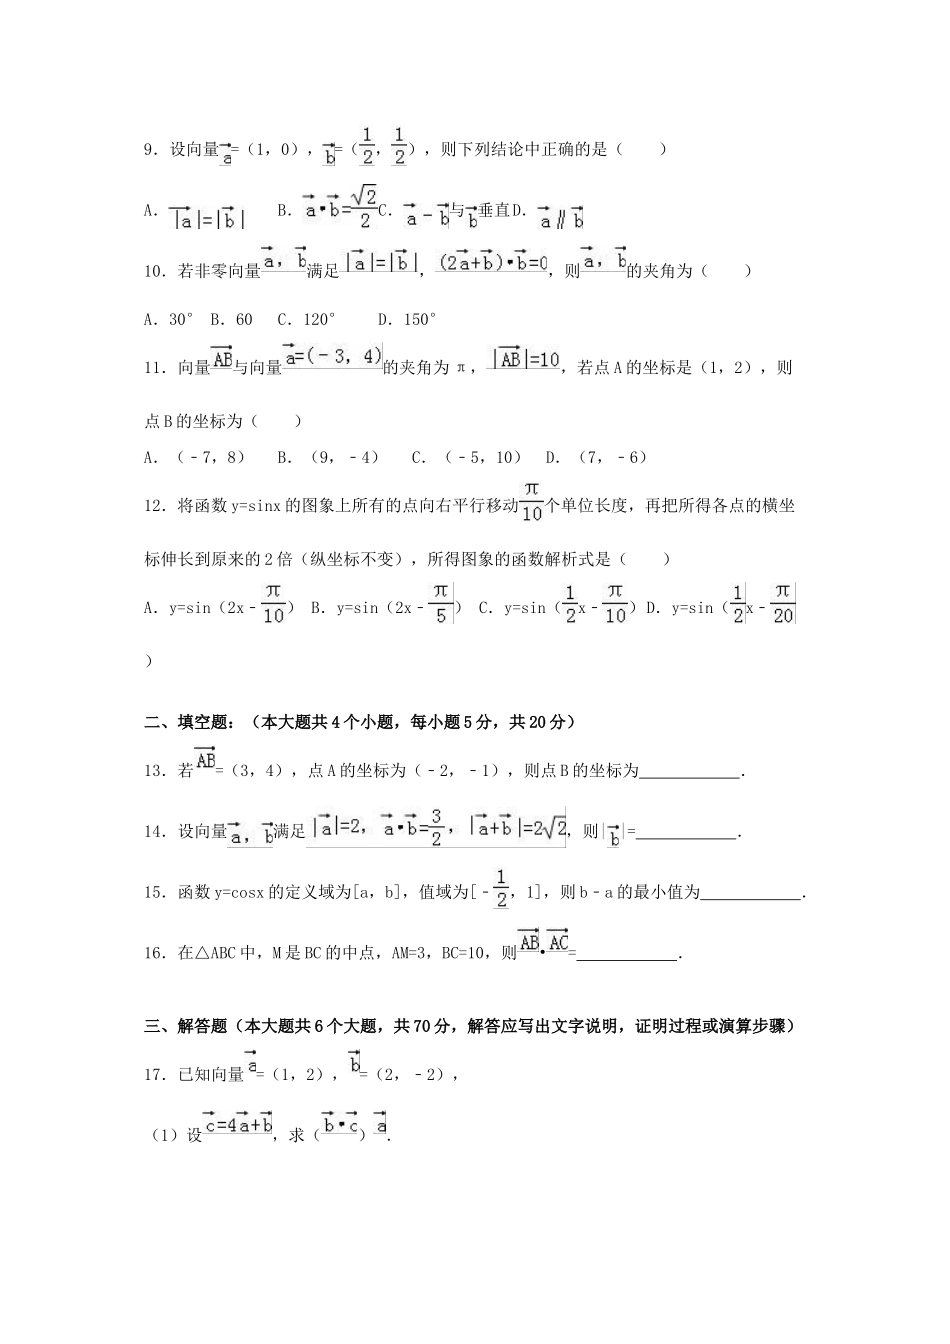 9．设向量a⃗=（1，0），b⃗=（1/2，1/2），则下列结论中正确的是（　　）
A．|a⃗|=|b⃗| B．a⃗•b⃗=√2/2 C．a⃗﹣b⃗与b⃗垂直 D．a⃗∥b⃗
10．若非零向量a⃗，b⃗满足|a⃗|=|b⃗|，(2a⃗+b⃗)•b⃗=0，则a⃗，b⃗的夹角为（　　）
A．30° B．60 C．120° D．150°
11．向量AB⃗与向量a⃗=(﹣3，4)的夹角为π，|AB⃗|=10，若点A的坐标是（1，2），则
点B的坐标为（　　）
A．（﹣7，8） B．（9，﹣4） C．（﹣5，10） D．（7，﹣6）
12．将函数y=sinx的图象上所有的点向右平行移动π/10个单位长度，再把所得各点的横坐
标伸长到原来的2倍（纵坐标不变），所得图象的函数解析式是（　　）
A．y=sin（2x﹣π/10） B．y=sin（2x﹣π/5） C．y=sin（1/2x﹣π/10）D．y=sin（1/2x﹣π/20
）
二、填空题：（本大题共4个小题，每小题5分，共20分）
13．若AB⃗=（3，4），点A的坐标为（﹣2，﹣1），则点B的坐标为　　　　．
14．设向量a⃗，b⃗满足|a⃗|=2，a⃗•b⃗=3/2，|a⃗+b⃗|=2√2，则|b⃗|=　　　　．
15．函数y=cosx的定义域为[a，b]，值域为[﹣1/2，1]，则b﹣a的最小值为　　　　．
16．在△ABC中，M是BC的中点，AM=3，BC=10，则AB⃗•AC⃗=　　　　．
三、解答题（本大题共6个大题，共70分，解答应写出文字说明，证明过程或演算步骤）
17．已知向量a⃗=（1，2），b⃗=（2，﹣2），
（1）设c⃗=4a⃗+b⃗，求（b⃗•c⃗）a⃗．